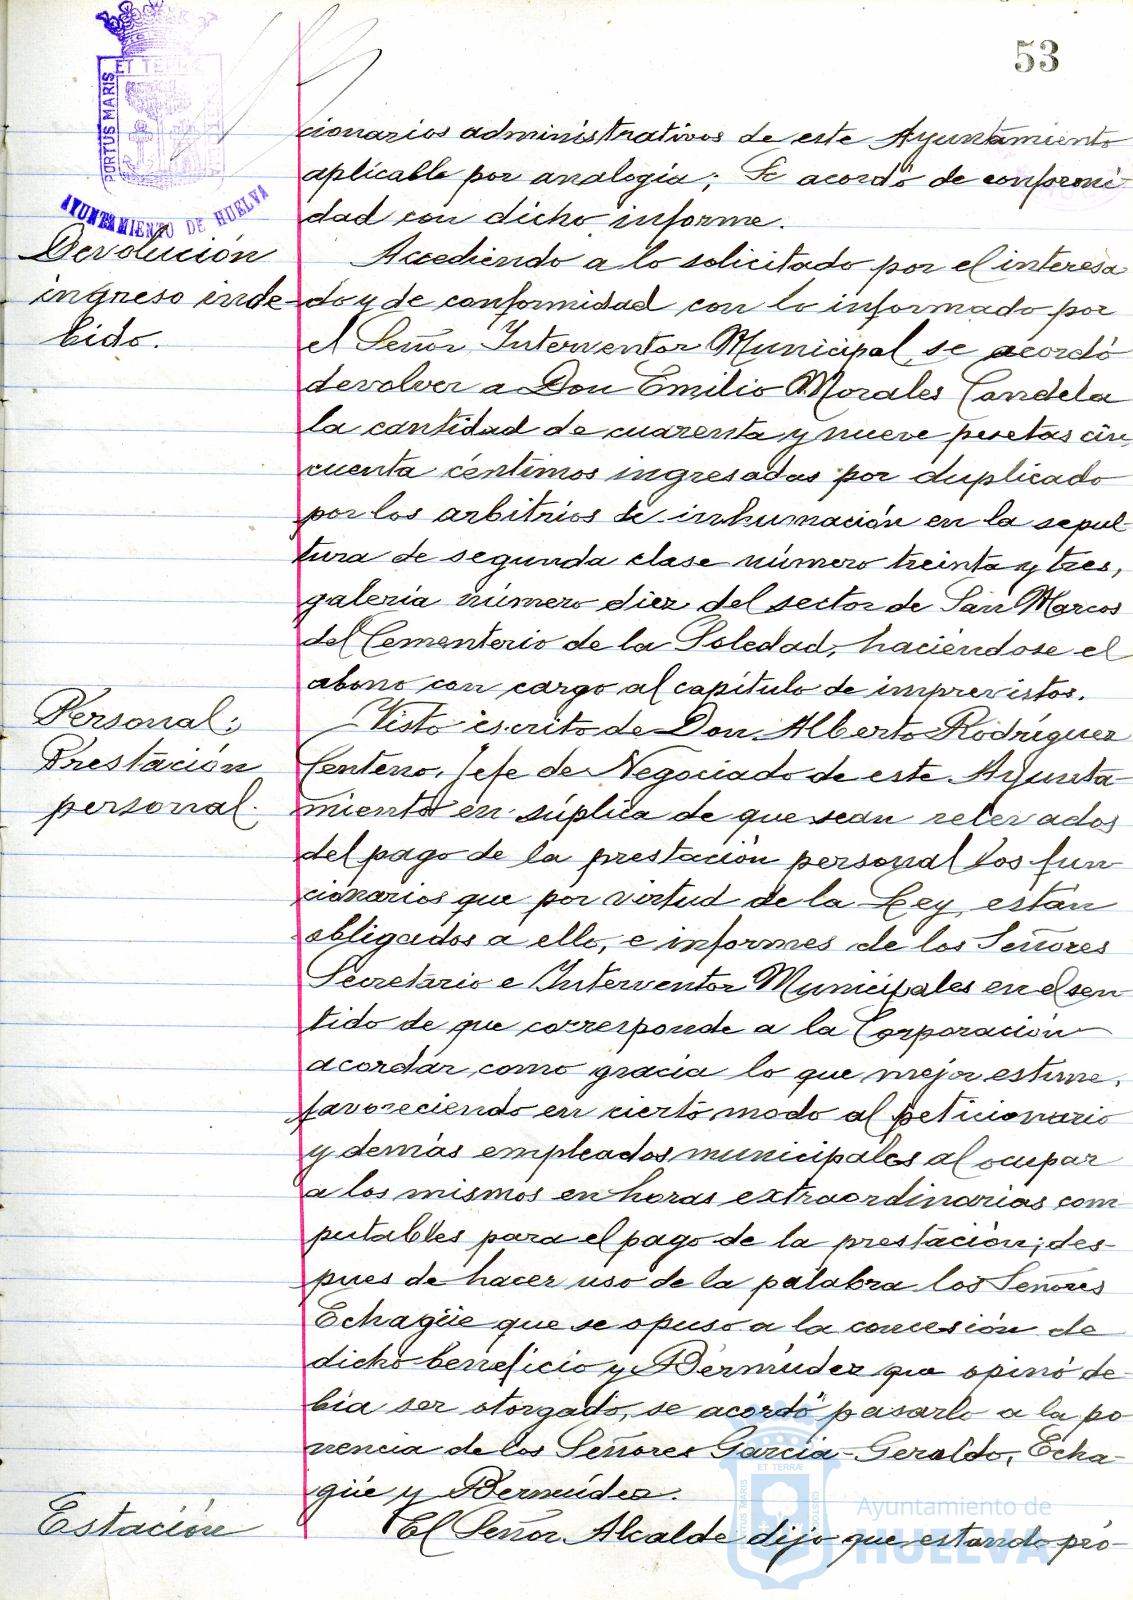 53
PORTUS MARIS
ET TERRÆ
AYUNTAMIENTO DE HUELVA
cionarios administrativos de este Ayuntamiento
aplicable por analogía; Se acordó de conformi
dad con dicho informe.
Devolución
ingreso inde-
bido.
Accediendo a lo solicitado por el interesa
do y de conformidad con lo informado por
el Señor Interventor Municipal se acordó
devolver a Don Emilio Morales Candela
la cantidad de cuarenta y nueve pesetas cin
cuenta céntimos ingresadas por duplicado
por los arbitrios de inhumación en la sepul-
tura de segunda clase número treinta y tres,
galería número diez del sector de San Marcos
del Cementerio de la Soledad, haciéndose el
abono con cargo al capítulo de imprevistos.
Personal:
Prestación
personal.
Visto escrito de Don Alberto Rodríguez
Centeno, Jefe de Negociado de este Ayunta-
miento en súplica de que sean relevados
del pago de la prestación personal los fun
cionarios que por virtud de la Ley, están
obligados a ello, e informes de los Señores
Secretario e Interventor Municipales en el sen
tido de que corresponde a la Corporación
acordar como gracia lo que mejor estime,
favoreciendo en cierto modo al peticionario
y demás empleados municipales al ocupar
a los mismos en horas extraordinarias com-
putables para el pago de la prestación; des-
pues de hacer uso de la palabra los Señores
Echagüe que se opuso a la concesión de
dicho beneficio y Bermúdez que opinó de-
bía ser otorgado, se acordó pasarlo a la po
nencia de los Señores García-Geraldo, Echa-
güe y Bermúdez.
Estación
El Señor Alcalde dijo que estando pró-
PORTUS MARIS
ET TERRÆ
CUSTODIA
Ayuntamiento de
HUELVA